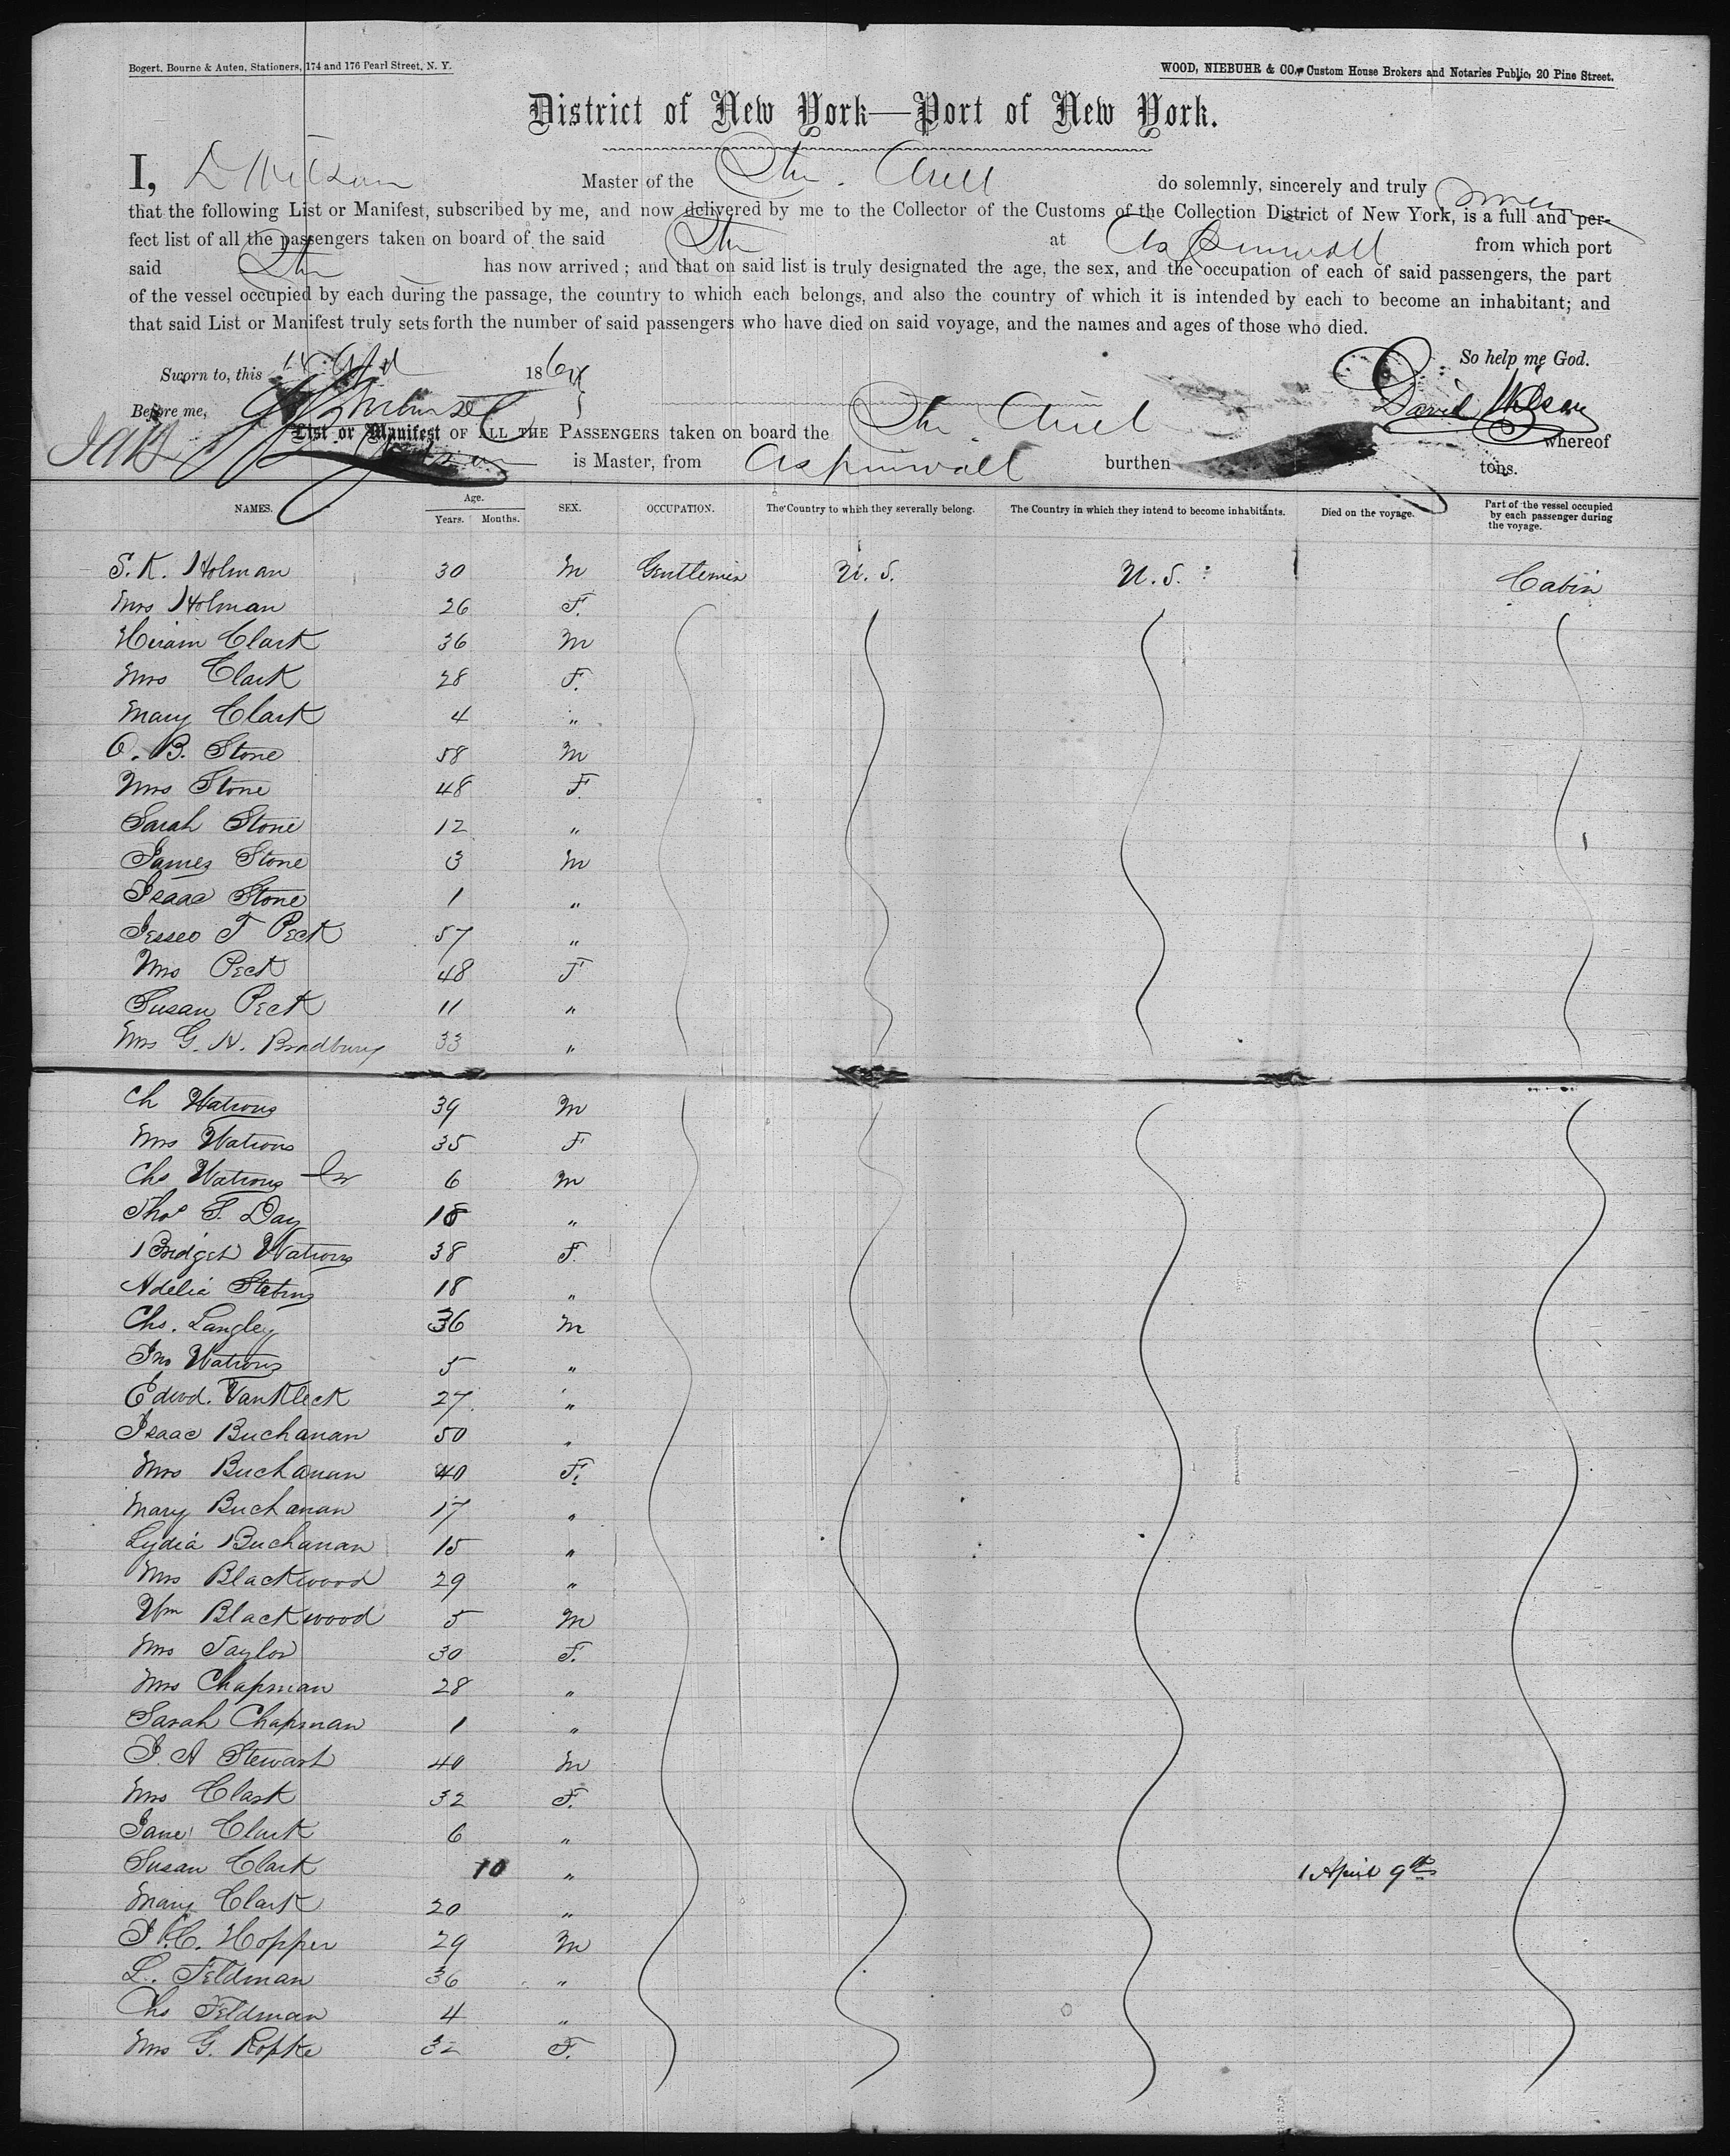 Bogert, Bourne & Auten, Stationers, 174 and 176 Pearl Street, N. Y.
WOOD, NIEBUHR & CO., Custom House Brokers and Notaries Public, 20 Pine Street.
District of New York—Port of New York.
I, D Wilson Master of the Str. Ariel do solemnly, sincerely and truly swear
that the following List or Manifest, subscribed by me, and now delivered by me to the Collector of the Customs of the Collection District of New York, is a full and per-
fect list of all the passengers taken on board of the said Str at Aspinwall from which port
said Str has now arrived; and that on said list is truly designated the age, the sex, and the occupation of each of said passengers, the part
of the vessel occupied by each during the passage, the country to which each belongs, and also the country of which it is intended by each to become an inhabitant; and
that said List or Manifest truly sets forth the number of said passengers who have died on said voyage, and the names and ages of those who died.
So help me God.
Sworn to, this 186
Before me, David Wilson
List or Manifest OF ALL THE PASSENGERS taken on board the Str. Ariel whereof
is Master, from Aspinwall burthen tons.
NAMES. Age. Years. Months. SEX. OCCUPATION. The Country to which they severally belong. The Country in which they intend to become inhabitants. Died on the voyage. Part of the vessel occupied by each passenger during the voyage.
S. K. Holman 30 M Gentlemen U. S. U. S. Cabin
Mrs Holman 26 F.
Hiram Clark 36 M
Mrs Clark 28 F.
Mary Clark 4 "
O. B. Stone 58 M
Mrs Stone 48 F.
Sarah Stone 12 "
James Stone 3 M
Isaac Stone 1 "
Jessee T Peck 57 "
Mrs Peck 48 F
Susan Peck 11 "
Mrs G. H. Bradbury 33 "
Ch Watrous 39 M
Mrs Watrous 35 F
Chs Watrous Jr 6 M
Thos S. Day 18 "
Bridget Watrous 38 F.
Adelia 18 "
Chs. Langley 36 M
Jno Watrous 5 "
Edwd. VanKleck 27 "
Isaac Buchanan 50 "
Mrs Buchanan 40 F.
Mary Buchanan 17 "
Lydia Buchanan 15 "
Mrs Blackwood 29 "
Wm Blackwood 5 M
Mrs Taylor 30 F.
Mrs Chapman 28 "
Sarah Chapman 1 "
J. A Stewart 40 M
Mrs Clark 32 F.
Jane Clark 6 "
Susan Clark 10 " 1 April 9th
Mary Clark 20 "
J. C. Hopper 29 M
L. Feldman 36 "
Chs Feldman 4 "
Mrs G. Ropke 32 F.